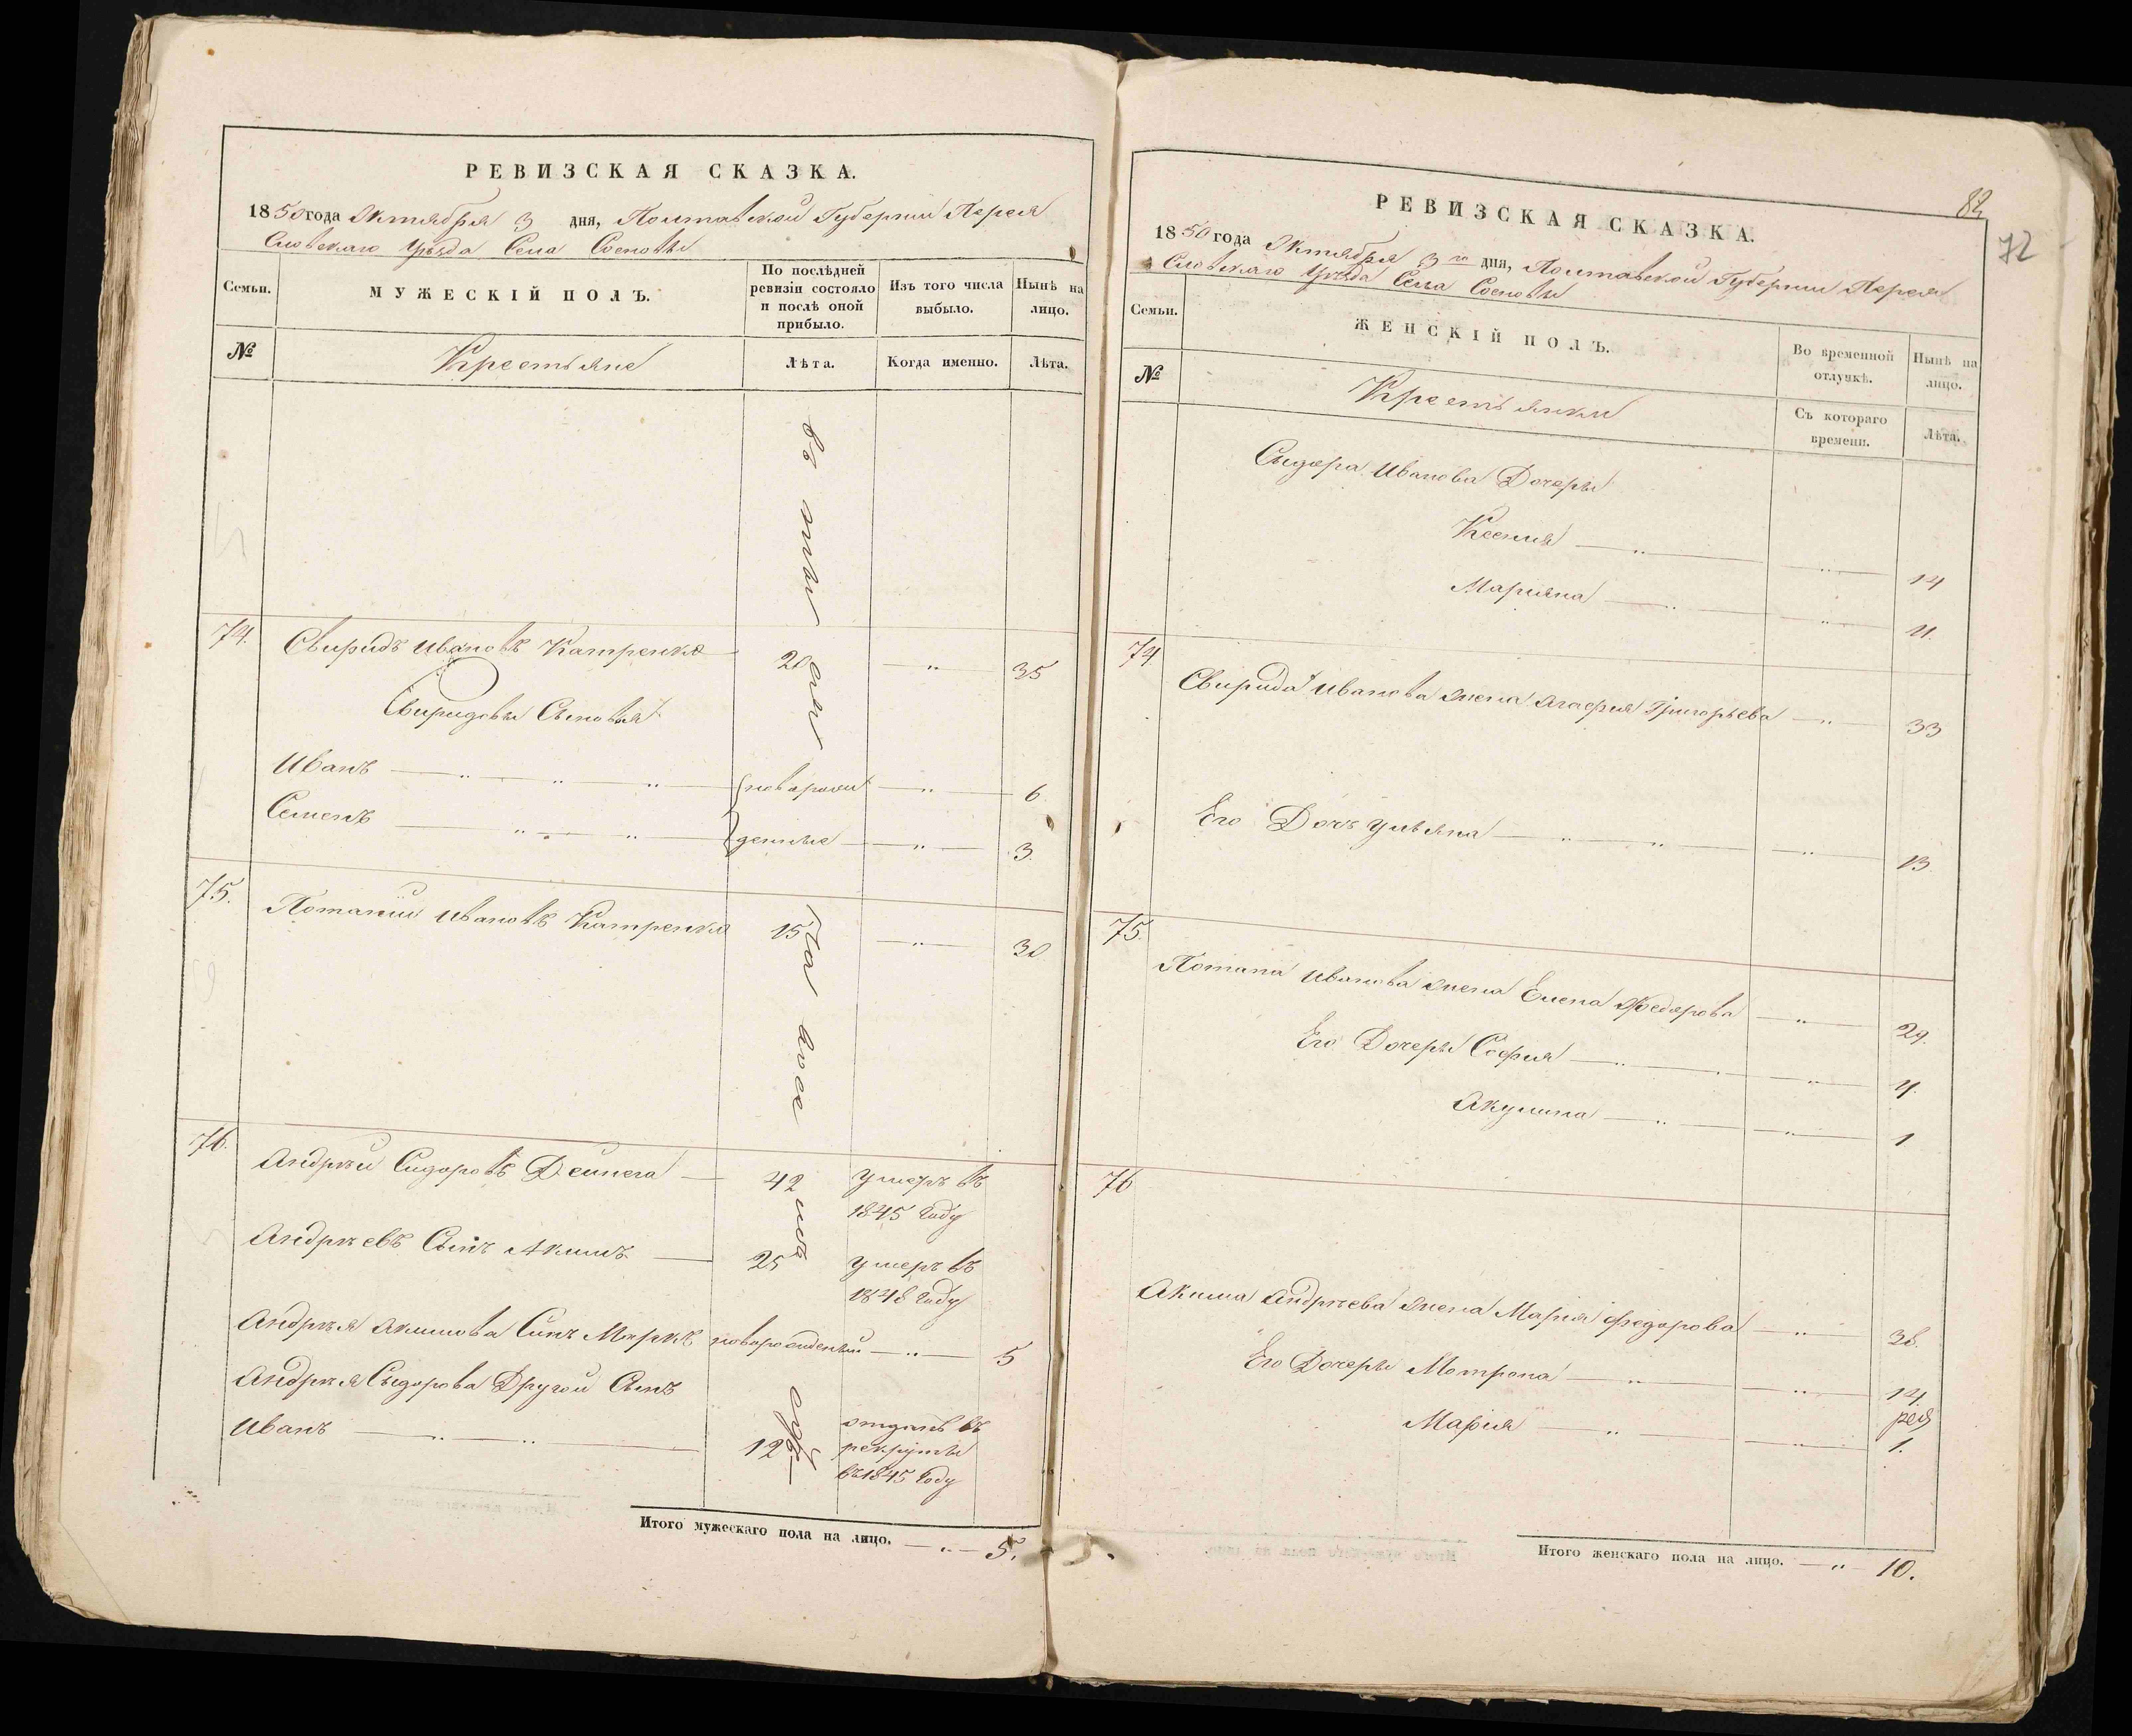 РЕВИЗСКАЯ СКАЗКА.
1850 года Октября 3 дня, Полтавской Губернии Перея
Словскаго Уѣзда Села Сосновы
Семьи.
МУЖЕСКІЙ ПОЛЪ.
По послѣдней ревизіи состояло и послѣ оной прибыло.
Изъ того числа выбыло.
Нынѣ на лицо.
№
Крестьяне
Лѣта.
Когда именно.
Лѣта.
74. Свиридъ Ивановъ Катренко 20 — „ — 35
Свиридовы Сыновья
Иванъ — „ — „ — „ — новорож — „ — 6
Семенъ — „ — „ — денные — „ — 3.
75. Потапий Ивановъ Катренко 15 — „ — 30
76. Андрѣй Сидоровъ Дейнега — 42 умеръ въ
1845 Году
Андрѣевъ Сынъ Акимъ — 25 умеръ въ
1848 Году
Андрѣя Акимова Сынъ Маркъ новорожденный — „ — 5
Андрѣя Сыдорова Другой Сынъ
Иванъ — „ — „ — 12 отданъ въ
рекруты
въ 1845 Году
Итого мужескаго пола на лицо. — „ — 5.
82
72
РЕВИЗСКАЯ СКАЗКА.
1850 года Октября 3го дня, Полтавской Губернии Перея
Словскаго Уѣзда Села Сосновы
Семьи.
ЖЕНСКІЙ ПОЛЪ.
Во временной отлучкѣ.
Нынѣ на лицо.
№
Крестьянки
Съ котораго времени.
Лѣта.
Сыдора Иванова Дочеры
Ксения — „ — „ — 14
Марияна — „ — „ — 11.
74 Свирида Иванова жена Агафия Григорьева — „ — 33
Его Дочь Ульяна — „ — „ — „ — 13.
75. Потапа Иванова жена Елена Федорова — „ — 29.
Его Дочеры София — „ — „ — 4.
Акулина — „ — „ — 1
76
Акима Андрѣева жена Мария Федорова — „ — 38.
Его Дочеры Мотрона — „ — „ — 14.
Мария — „ — „ — 1.
Итого женскаго пола на лицо. — „ — 10.